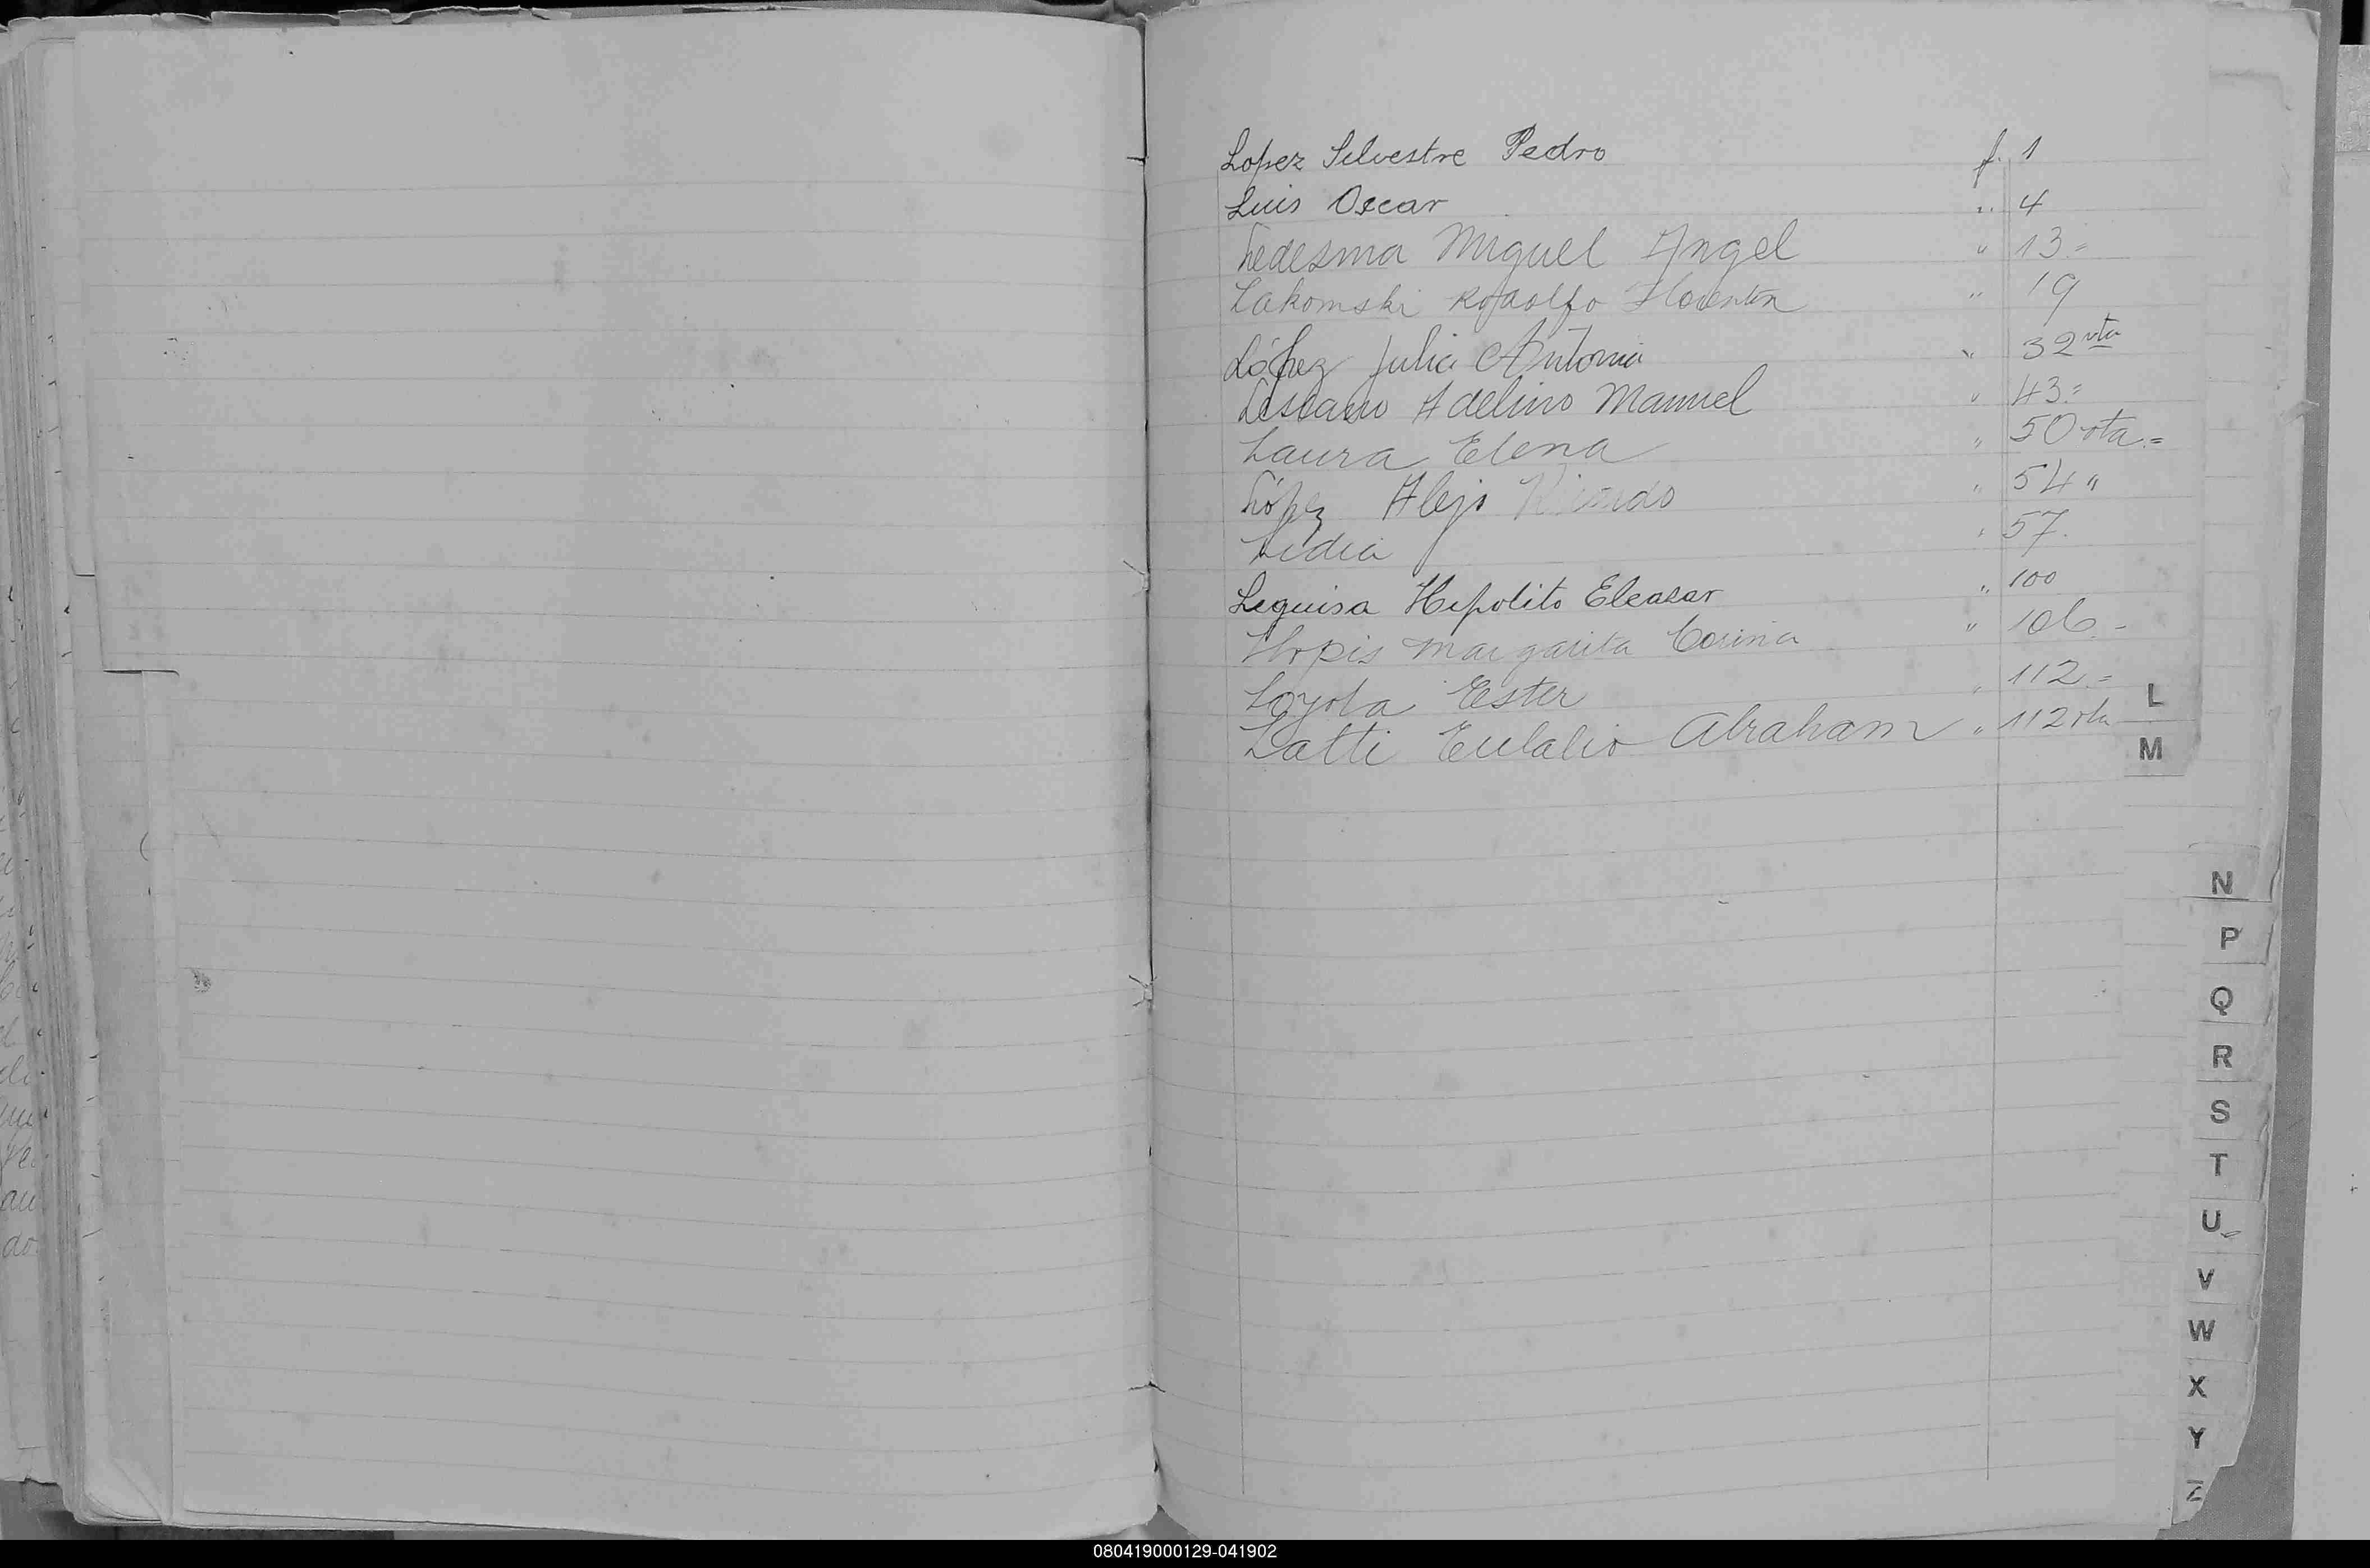 Lopez Silvestre Pedro f. 1
Luis Oscar " 4
Ledesma Miguel Angel " 13=
Lakomski Rodolfo Florentin " 19
López Julia Antonia " 32 vta
Lescano Adelino Manuel " 43=
Laura Elena " 50 vta.=
López Alejo Ricardo " 54 "
Lidia " 57.
Leguisa Hipolito Eleasar " 100
Llopis Margarita Corina " 106.-
Loyola Ester " 112.=
Latti Eulalio Abraham " 112 vta
L
M
N
P
Q
R
S
T
U
V
W
X
Y
Z
080419000129-041902